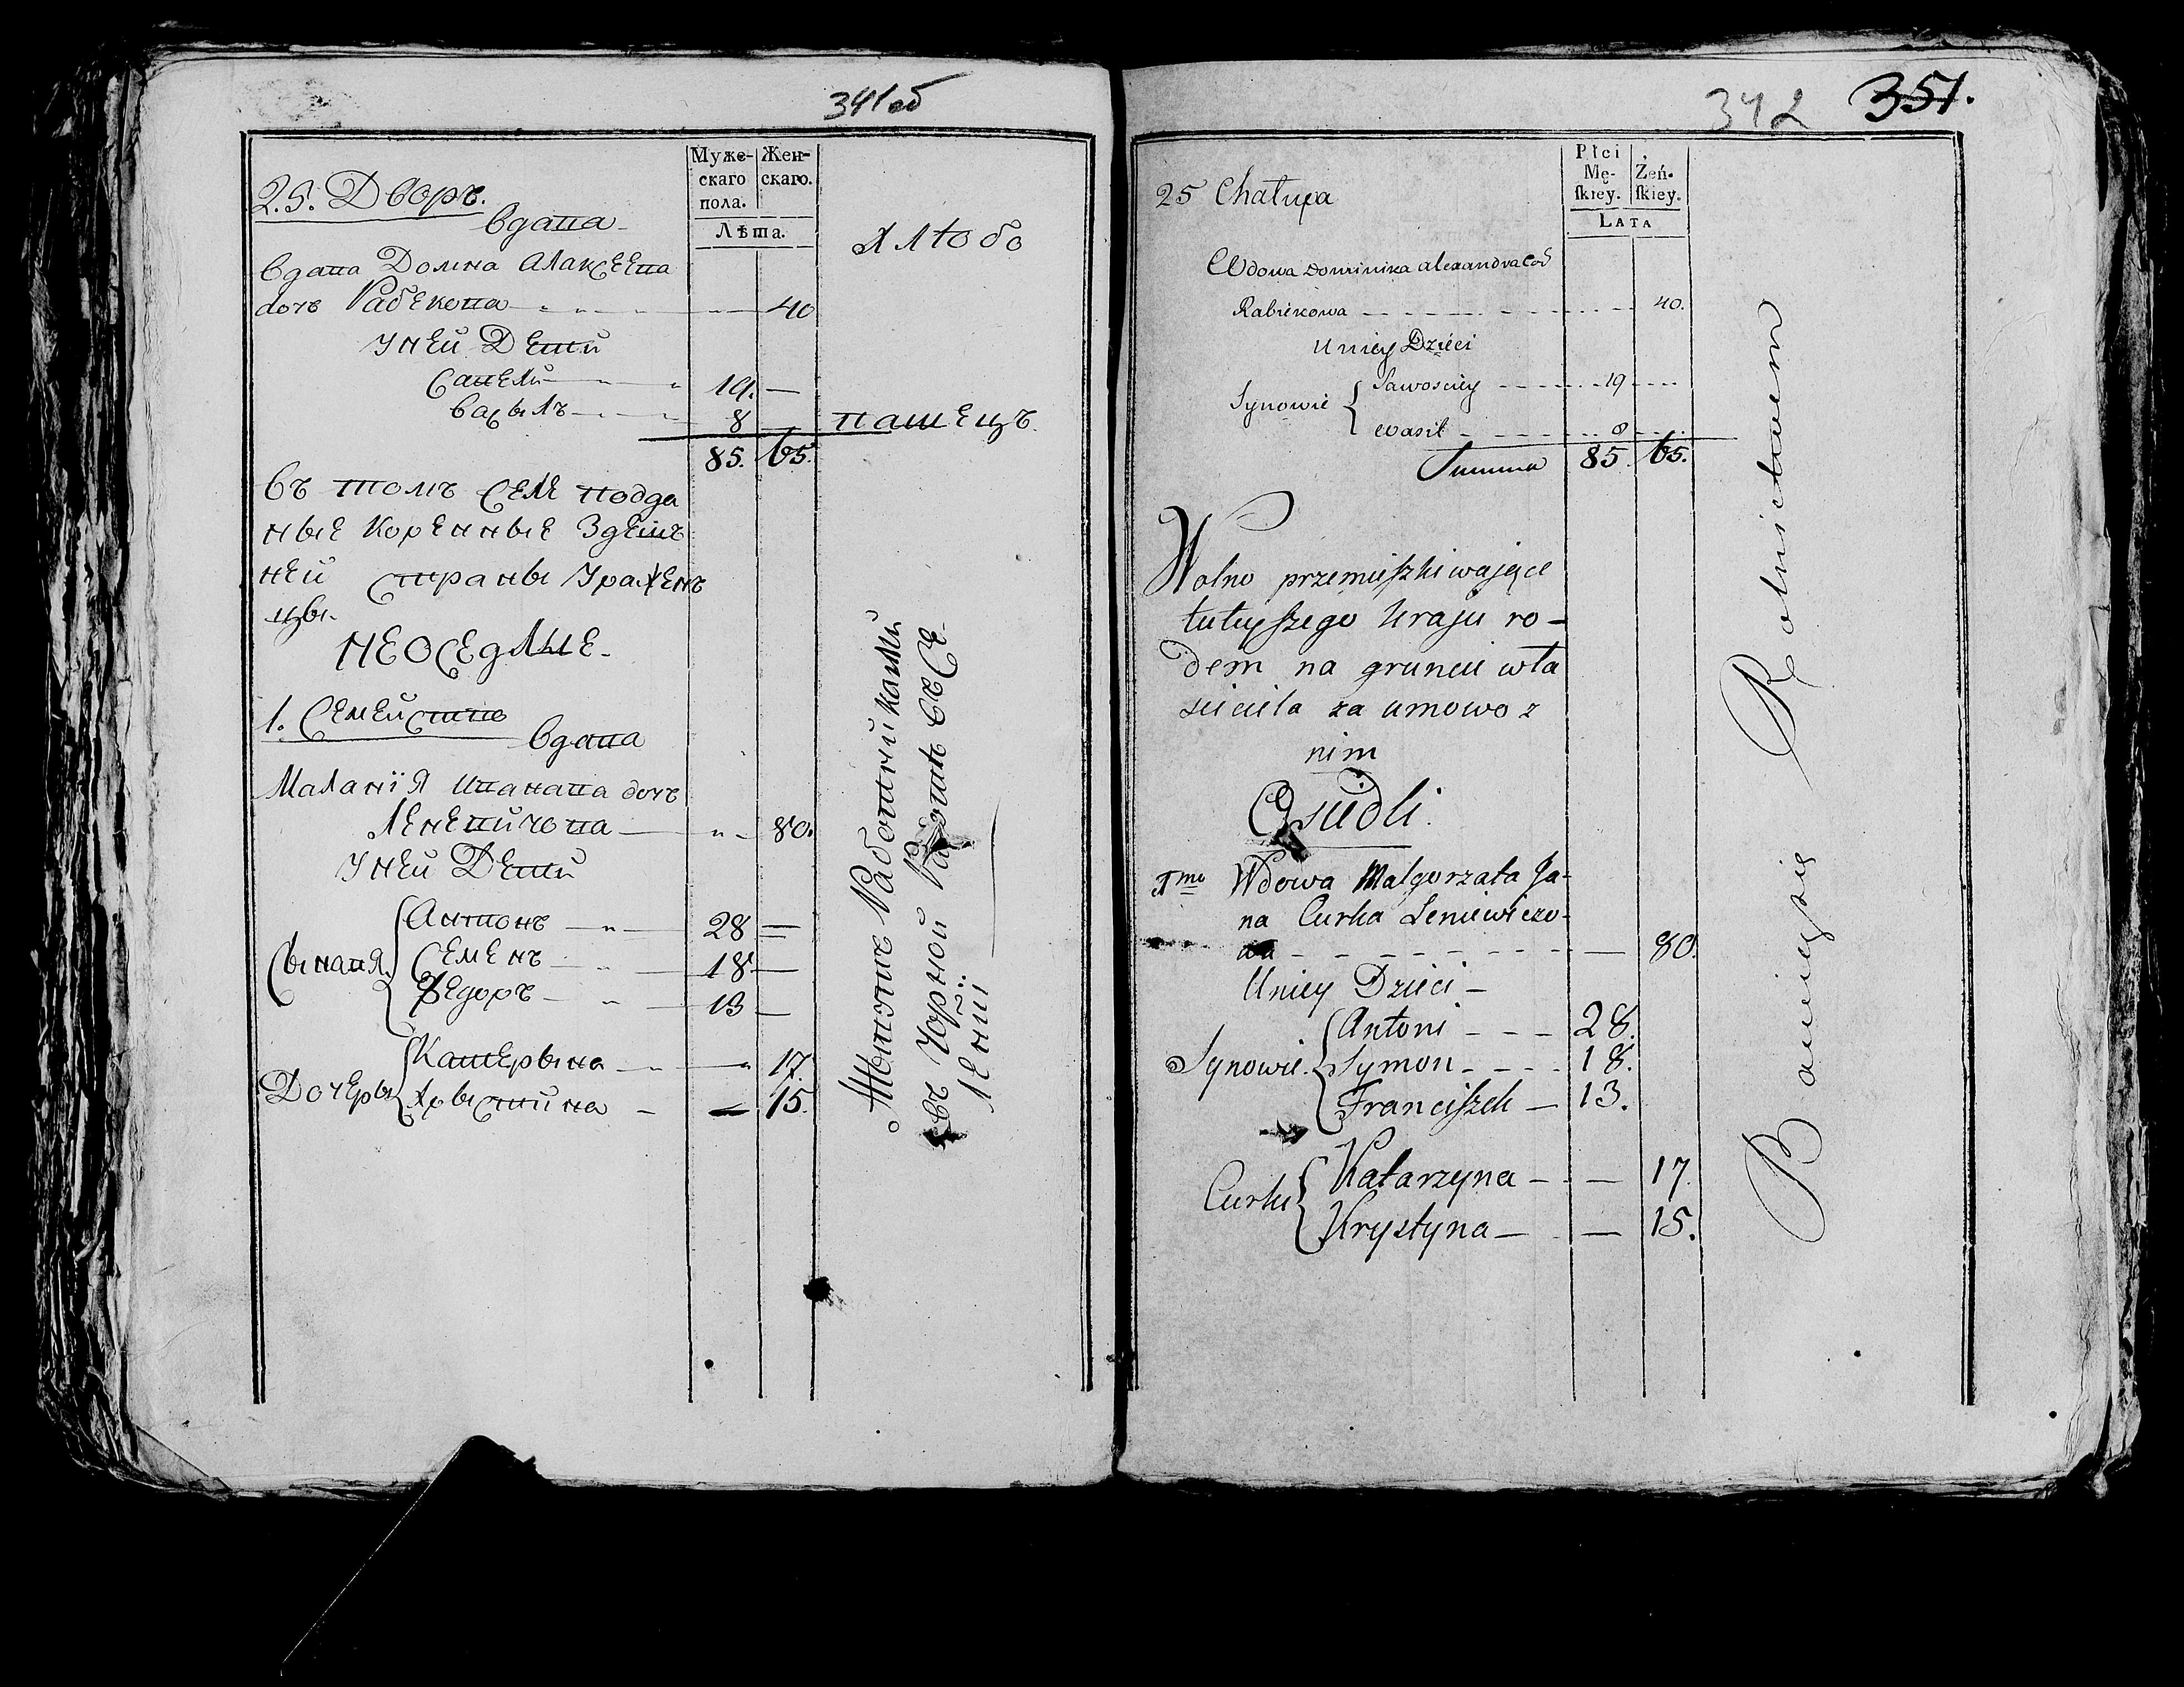 341об
Муже-
скаго
пола.
Жен-
скаго.
Лѣта.
25. Дворъ.
вдава
Хлѣбо
пашецъ.
вдава Домна Алаксеева
дочъ Рабекова 40
У ней Дети
Савели 19. —
Васылъ 8 —
85. 65.
Въ томъ селе подда
ные коренные Здешъ
ней страны Уроженъ
цы.
неоседлые.
1. Семейство
вдава
Маланiя Иванава дочъ
Леневичова 80.
У ней Дети
Сынавя.
Антонъ 28 —
Семенъ 18 —
Федоръ 13 —
Дочеры
Катерына 17.
Хрыстина 15.
Живэтъ Работниками
въ Чорной
342 351.
Płci
Mę-
skiey.
Żeń-
skiey.
LATA
25 Chałupa
Wdowa Dominika Alexandra Cor
Rabiekowa 40.
U niey Dzieci
Synowie
Sawosciey 19
Wasil 8
Summa 85. 65.
Wolno przemieszkiwające
tuteyszego kraju ro-
dem na gruncie wła
sciciela za umowo z
nim
Osiedli.
1mo Wdowa Malgorzata Ja-
na Curka Leniewiczo-
wa 80.
U niey Dzieci
Synowie.
Antoni 28.
Symon 18.
Franciszek 13.
Curki
Katarzyna 17.
Krystyna 15.
Bawię się Rolnictwem